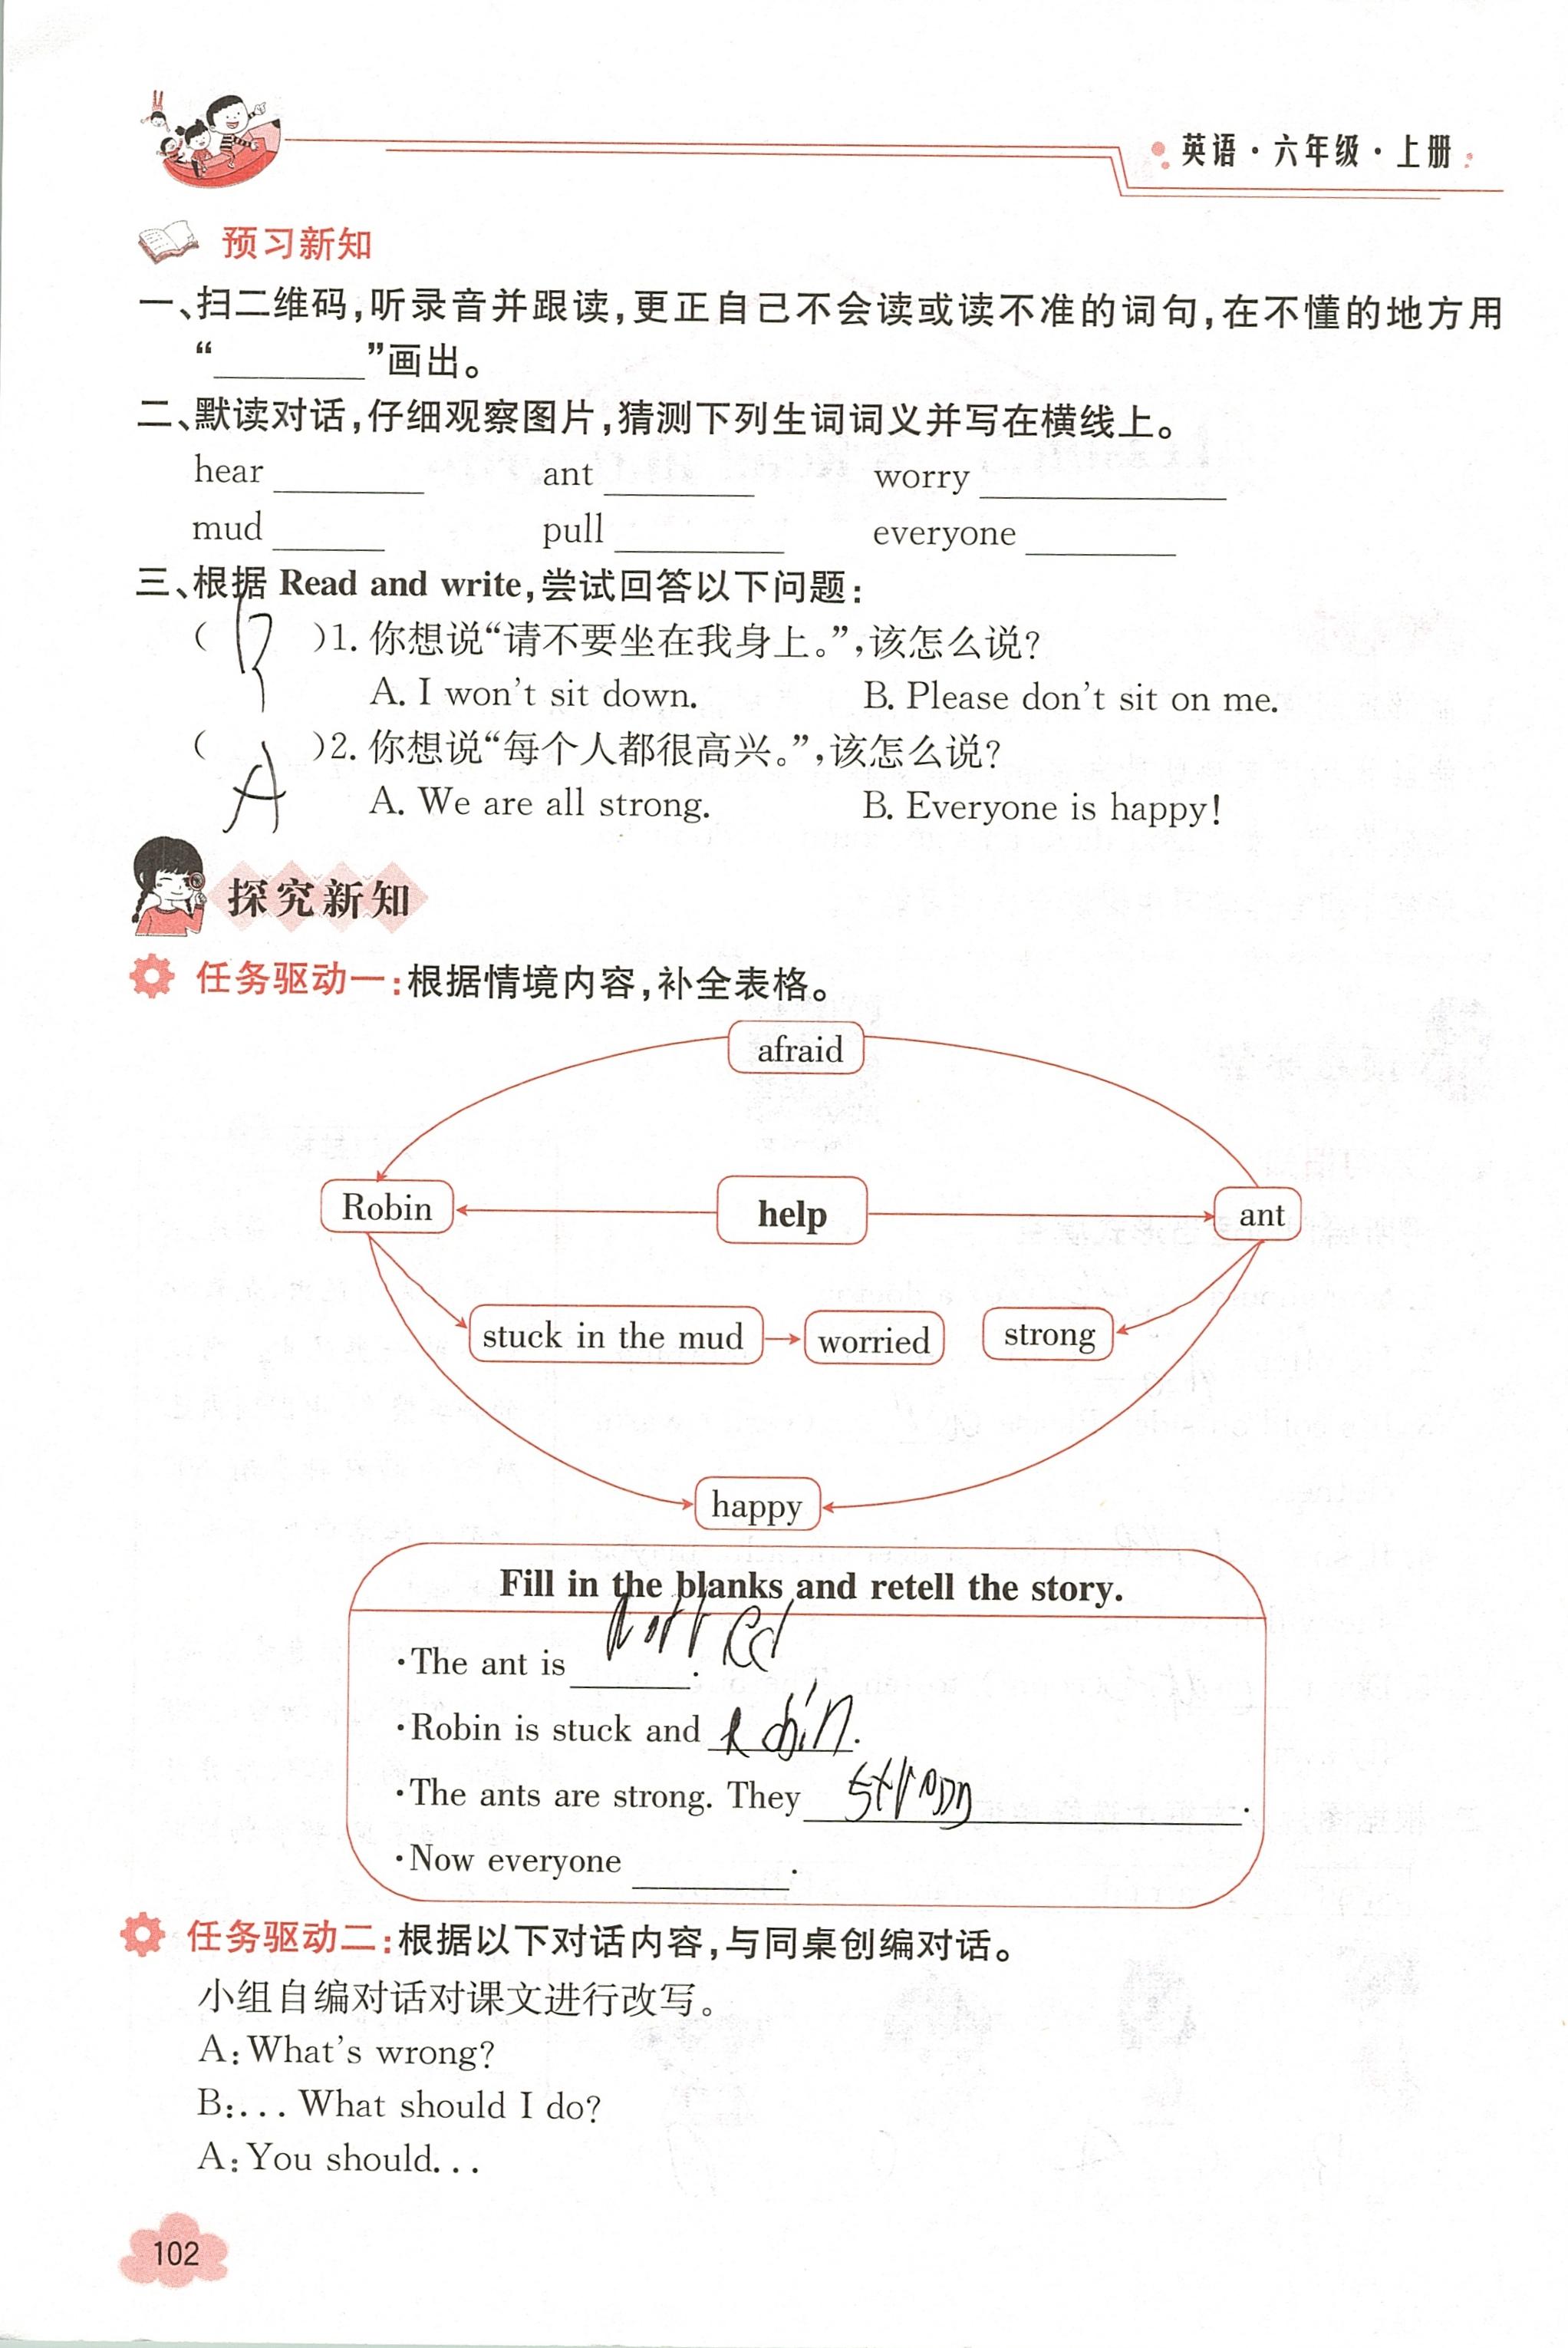 英语·六年级·上册
预习新知
一、扫二维码,听录音并跟读,更正自己不会读或读不准的词句,在不懂的地方用
“________”画出。
二、默读对话,仔细观察图片,猜测下列生词词义并写在横线上。
hear ________ ant ________ worry ________
mud ________ pull ________ everyone ________
三、根据 Read and write,尝试回答以下问题:
( B )1. 你想说“请不要坐在我身上。”,该怎么说?
A. I won't sit down. B. Please don't sit on me.
( A )2. 你想说“每个人都很高兴。”,该怎么说?
A. We are all strong. B. Everyone is happy!
探究新知
任务驱动一:根据情境内容,补全表格。
afraid
Robin help ant
stuck in the mud worried strong
happy
Fill in the blanks and retell the story.
·The ant is ________.
·Robin is stuck and Robin.
·The ants are strong. They ________.
·Now everyone ________.
任务驱动二:根据以下对话内容,与同桌创编对话。
小组自编对话对课文进行改写。
A:What's wrong?
B:... What should I do?
A:You should...
102